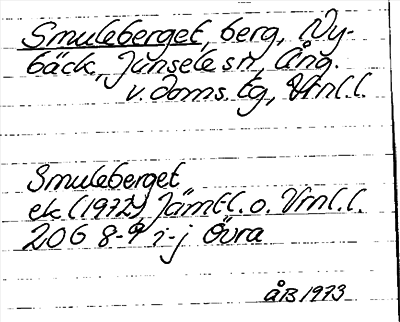 Smuleberget, berg, Ny-
bäck, Junsele sn, Ång.
v. doms. tg, Vrnl.l.
Smuleberget
ek (1972) Jämtl. o. Vrnl.l.
20G 8-9 i-j Övra
ÅB 1973